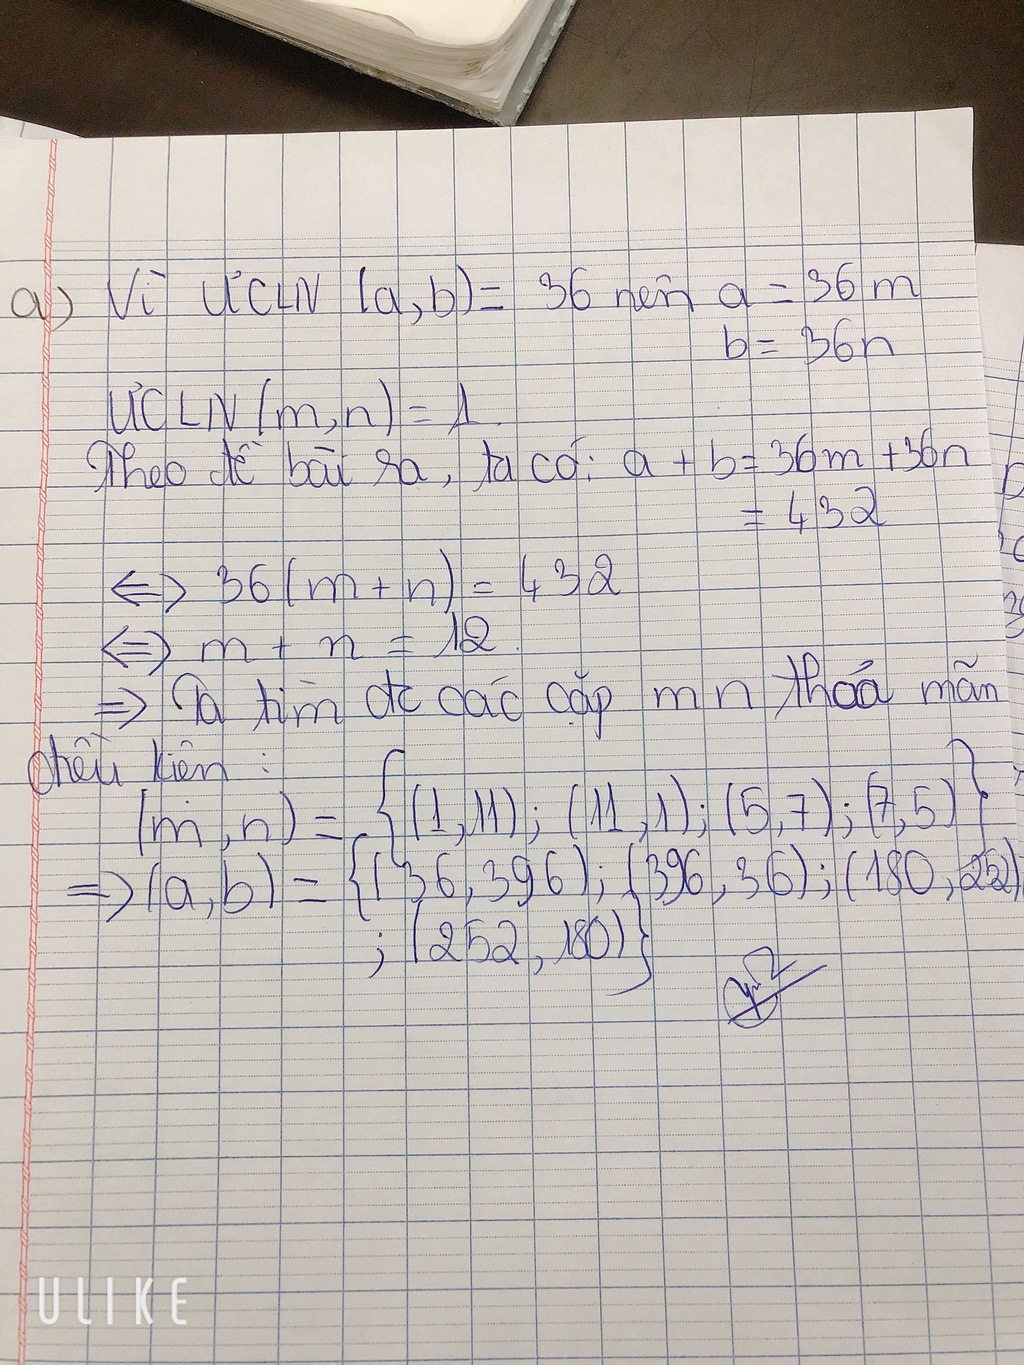 a) Vì ƯCLN (a,b) = 36 nên a = 36m
b = 36n
ƯCLN (m,n) = 1.
Theo đề bài ra, ta có: a + b = 36m + 36n
= 432
<=> 36(m + n) = 432
<=> m + n = 12.
=> Ta tìm đc các cặp m n thoả mãn
điều kiện :
(m,n) = {(1,11); (11,1); (5,7); (7,5)}
=> (a,b) = {(36,396); (396,36); (180,252)
; (252,180)}
ULIKE